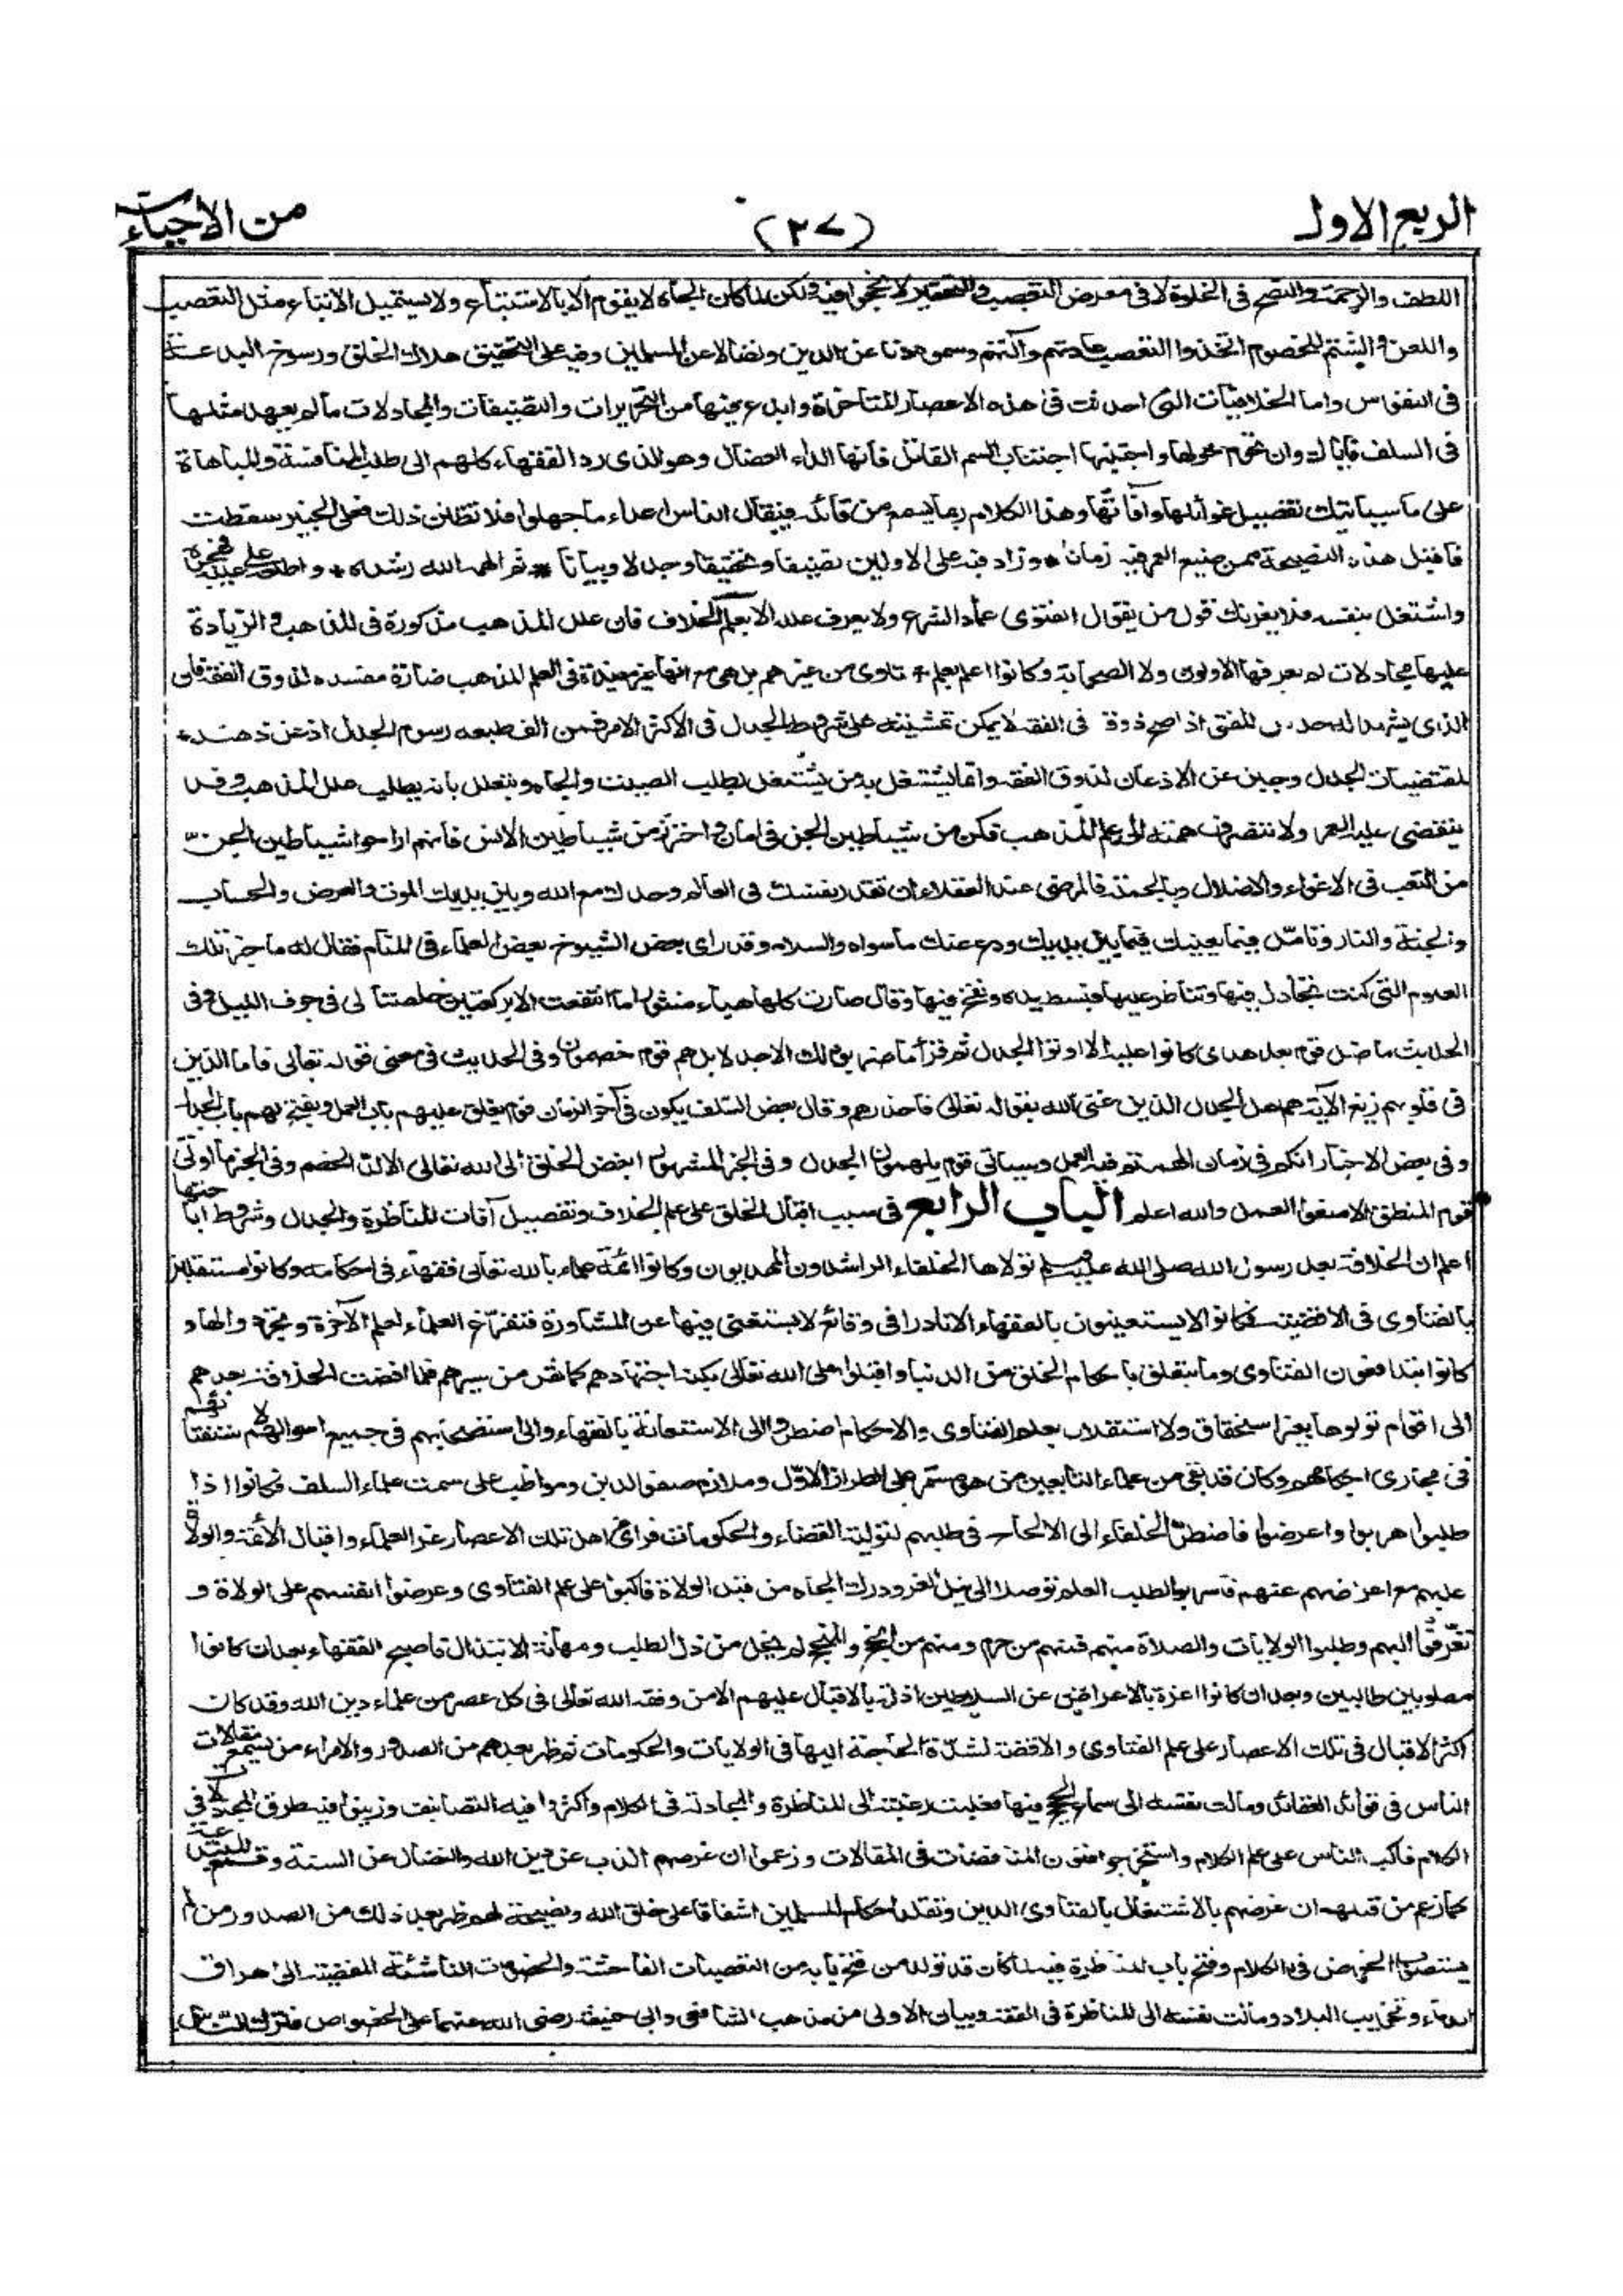 الربع الاول
(٣٧)
من الاحياء
اللطف والرحمة والنصح فى الخلوة لا فى معرض التعصب والتحقير لانجحوا فيه ولكن لما كان الجاه لا يقوم الا بالاستتباع ولا يستميل الاتباع مثل التعصب
واللعن والشتم للخصوم اتخذوا التعصب عادتهم وآلتهم وسموه ذبا عن الدين ونضالا عن المسلمين وفيه على التحقيق هلاك الخلق ورسوخ البدعة
فى النفوس واما الخلافيات التى احدثت فى هذه الاعصار المتاخرة وابدع فيها من التحريرات والتصنيفات والمجادلات ما لم يعهد مثلها
فى السلف فاياك وان تحوم حولها واجتنبها اجتناب السم القاتل فانها الداء العضال وهو الذى رد الفقهاء كلهم الى طلب المنافسة والمباهاة
على ما سياتيك تفصيل غوائلها وآفاتها وهذا الكلام ربما يسمع من قائله فيقال الناس اعداء ما جهلوا فلا تظنن ذلك فعلى الخبير سقطت
فاقبل هذه النصيحة ممن ضيع العمر فيه زمانا * وزاد فيه على الاولين تصنيفا وتحقيقا وجدلا وبيانا * ثم الهمه الله رشده * واطلعه على عيبه فهجره
واشتغل بنفسه فلا يغرنك قول من يقول الفتوى عماد الشرع ولا يعرف علله الا بعلم الخلاف فان علل المذهب مذكورة فى المذهب والزيادة
عليها مجادلات لم يعرفها الاولون ولا الصحابة وكانوا اعلم بعلل الفتاوى من غيرهم بل هى مع انها غير مفيدة فى العلم المذهب ضارة مفسدة لذوق الفقه فان
الذى يشهد له حدس المفتى اذا صح ذوقه فى الفقه لا يمكن تمشيته على شروط الجدل فى الاكثر الامر فمن الف طبعه رسوم الجدل اذعن ذهنه
لمقتضيات الجدل وجبن عن الاذعان لذوق الفقه وانما يشتغل به من يشتغل لطلب الصيت والجاه ويتعلل بانه يطلب علل المذهب وقد
ينقضى عليه العمر ولا تنصرف همته الى علم المذهب فكن من شياطين الجن فى امان واحترز من شياطين الانس فانهم اراحوا شياطين الجن
من التعب فى الاغواء والاضلال وبالجملة فالمرضى عند العقلاء ان تقدر نفسك فى العالم وحدك مع الله وبين يديك الموت والعرض والحساب
والجنة والنار وتامل فيما يعنيك فيما بين يديك ودع عنك ما سواه والسلام وقد راى بعض الشيوخ بعض العلماء فى المنام فقال له ما خبر تلك
العلوم التى كنت تجادل فيها وتناظر عليها فبسط يده ونفخ فيها وقال صارت كلها هباء منثورا ما انتفعت الا بركعتين خلصتا لى فى جوف الليل وفى
الحديث ما ضل قوم بعد هدى كانوا عليه الا اوتوا الجدل ثم قرأ ما ضربوه لك الا جدلا بل هم قوم خصمون وفى الحديث فى معنى قوله تعالى فاما الذين
فى قلوبهم زيغ الآية هم اهل الجدال الذين عنى الله بقوله تعالى فاحذرهم وقال بعض السلف يكون فى آخر الزمان قوم يغلق عليهم باب العمل ويفتح لهم باب الجدل
وفى بعض الاخبار انكم فى زمان الهمتم فيه العمل وسياتى قوم يلهمون الجدل وفى الخبر المشهور ابغض الخلق الى الله تعالى الالد الخصم وفى الخبر ما اوتى
قوم المنطق الا منعوا العمل والله اعلم الباب الرابع فى سبب اقبال الخلق على علم الخلاف وتفصيل آفات المناظرة والجدل وشروط اباحتها
اعلم ان الخلافة بعد رسول الله صلى الله عليه وسلم تولاها الخلفاء الراشدون المهديون وكانوا ائمة علماء بالله تعالى فقهاء فى احكامه وكانوا مستقلين
بالفتاوى فى الاقضية فكانوا لا يستعينون بالفقهاء الا نادرا فى وقائع لا يستغنى فيها عن المشاورة فتفرغ العلماء لعلم الآخرة وتجردوا لها و
كانوا يتدافعون الفتاوى وما يتعلق باحكام الخلق من الدنيا واقبلوا على الله تعالى بكنه اجتهادهم كما نقل من سيرهم فلما افضت الخلافة بعدهم
الى اقوام تولوها بغير استحقاق ولا استقلال بعلم الفتاوى والاحكام اضطروا الى الاستعانة بالفقهاء والى استصحابهم فى جميع احوالهم لاستفتائهم
فى مجارى احكامهم وكان قد بقى من علماء التابعين من هو مستمر على الطراز الاول وملازم صفو الدين ومواظب على سمت علماء السلف فكانوا اذا
طلبوا هربوا واعرضوا فاضطر الخلفاء الى الالحاح فى طلبهم لتولية القضاء والحكومات فراى اهل تلك الاعصار عز العلماء واقبال الأئمة والولاة
عليهم مع اعراضهم عنهم فاشرابوا لطلب العلم توصلا الى نيل العز ودرك الجاه من قبل الولاة فاكبوا على علم الفتاوى وعرضوا انفسهم على الولاة و
تعرفوا اليهم وطلبوا الولايات والصلاة منهم فمنهم من حرم ومنهم من انجح والمنجح لم يخل من ذل الطلب ومهانة الابتذال فاصبح الفقهاء بعد ان كانوا
مطلوبين طالبين وبعد ان كانوا اعزة بالاعراض عن السلاطين اذلة بالاقبال عليهم الا من وفقه الله تعالى فى كل عصر من علماء دين الله وقد كان
اكثر الاقبال فى تلك الاعصار على علم الفتاوى والاقضية لشدة الحاجة اليها فى الولايات والحكومات ثم ظهر بعدهم من الصدور والامراء من يسمع مقالات
الناس فى قواعد العقائد ومالت نفسه الى سماع الحجج فيها فغلبت رغبته الى المناظرة والمجادلة فى الكلام واكثروا فيه التصانيف ورتبوا فيه طرق المجادلات فى
الكلام فاكب الناس على علم الكلام واستخرجوا فنون المناقضات فى المقالات وزعموا ان غرضهم الذب عن دين الله والنضال عن السنة وقمع المبتدعة
كما زعم من قبلهم ان غرضهم بالاشتغال بالفتاوى الدين وتقلد احكام المسلمين اشفاقا على خلق الله ونصيحة لهم ثم ظهر بعد ذلك من الصدور من لم
يستصوب الخوض فى الكلام وفتح باب المناظرة فيه لما كان قد تولد من فتح بابه من التعصبات الفاحشة والخصومات الناشئة المفضية الى هراق
الدماء وتخريب البلاد ومالت نفسه الى المناظرة فى الفقه وبيان الاولى من مذهب الشافعى وابى حنيفة رضى الله عنهما على الخصوص فترك الناس